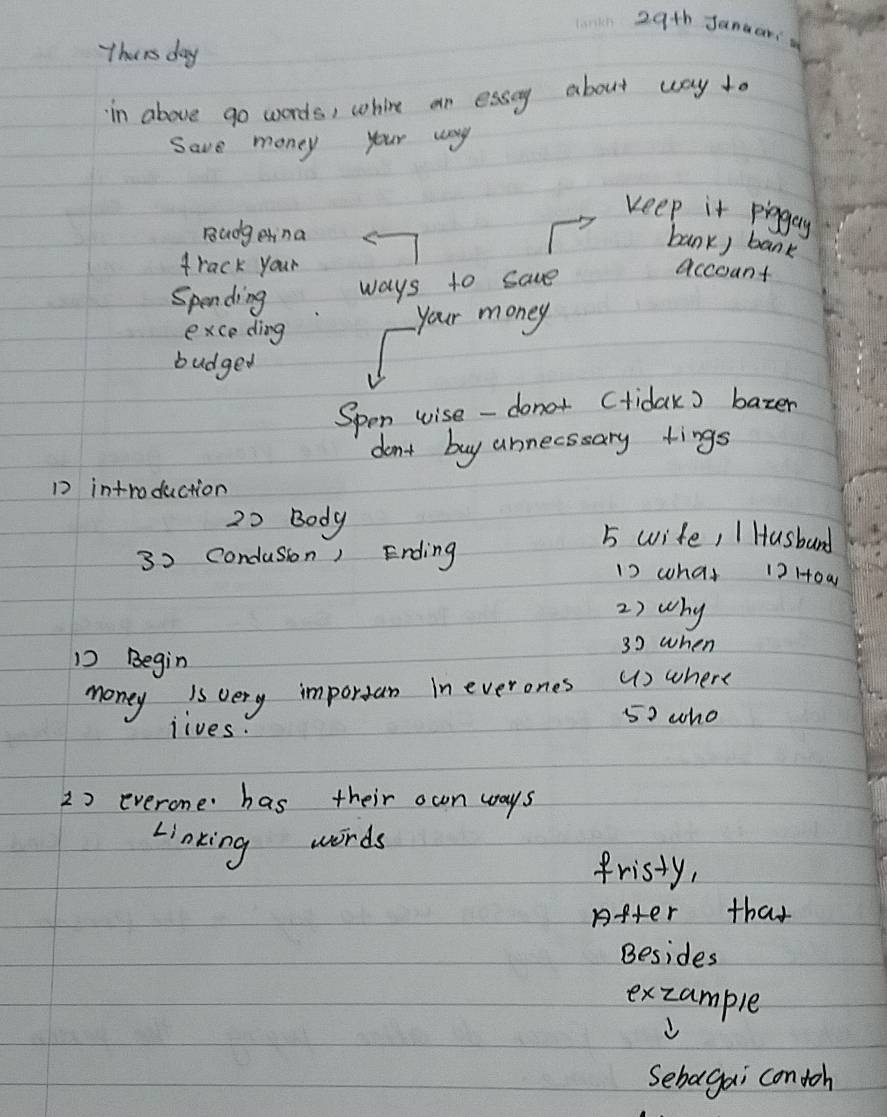 29th Januari
Thursday
in above 90 words, whire an essay about way to
Save money your way
Keep it piggery
bank, bank
account
Budgetina
track your
Spending
exceding
budget
ways to save
your money
Spen wise - donot (tidak) bazer
dont buy unnecssary tings
1) introduction
2) Body
3) Conclusion, Ending
5 wife, 1 Husband
1) what 1) How
2) why
3) when
4) where
5) who
1) Begin
money is very importan in everones
lives.
2) everone. has their own ways
Linking words
fristy,
After that
Besides
exzample
↓
Sebagai contoh